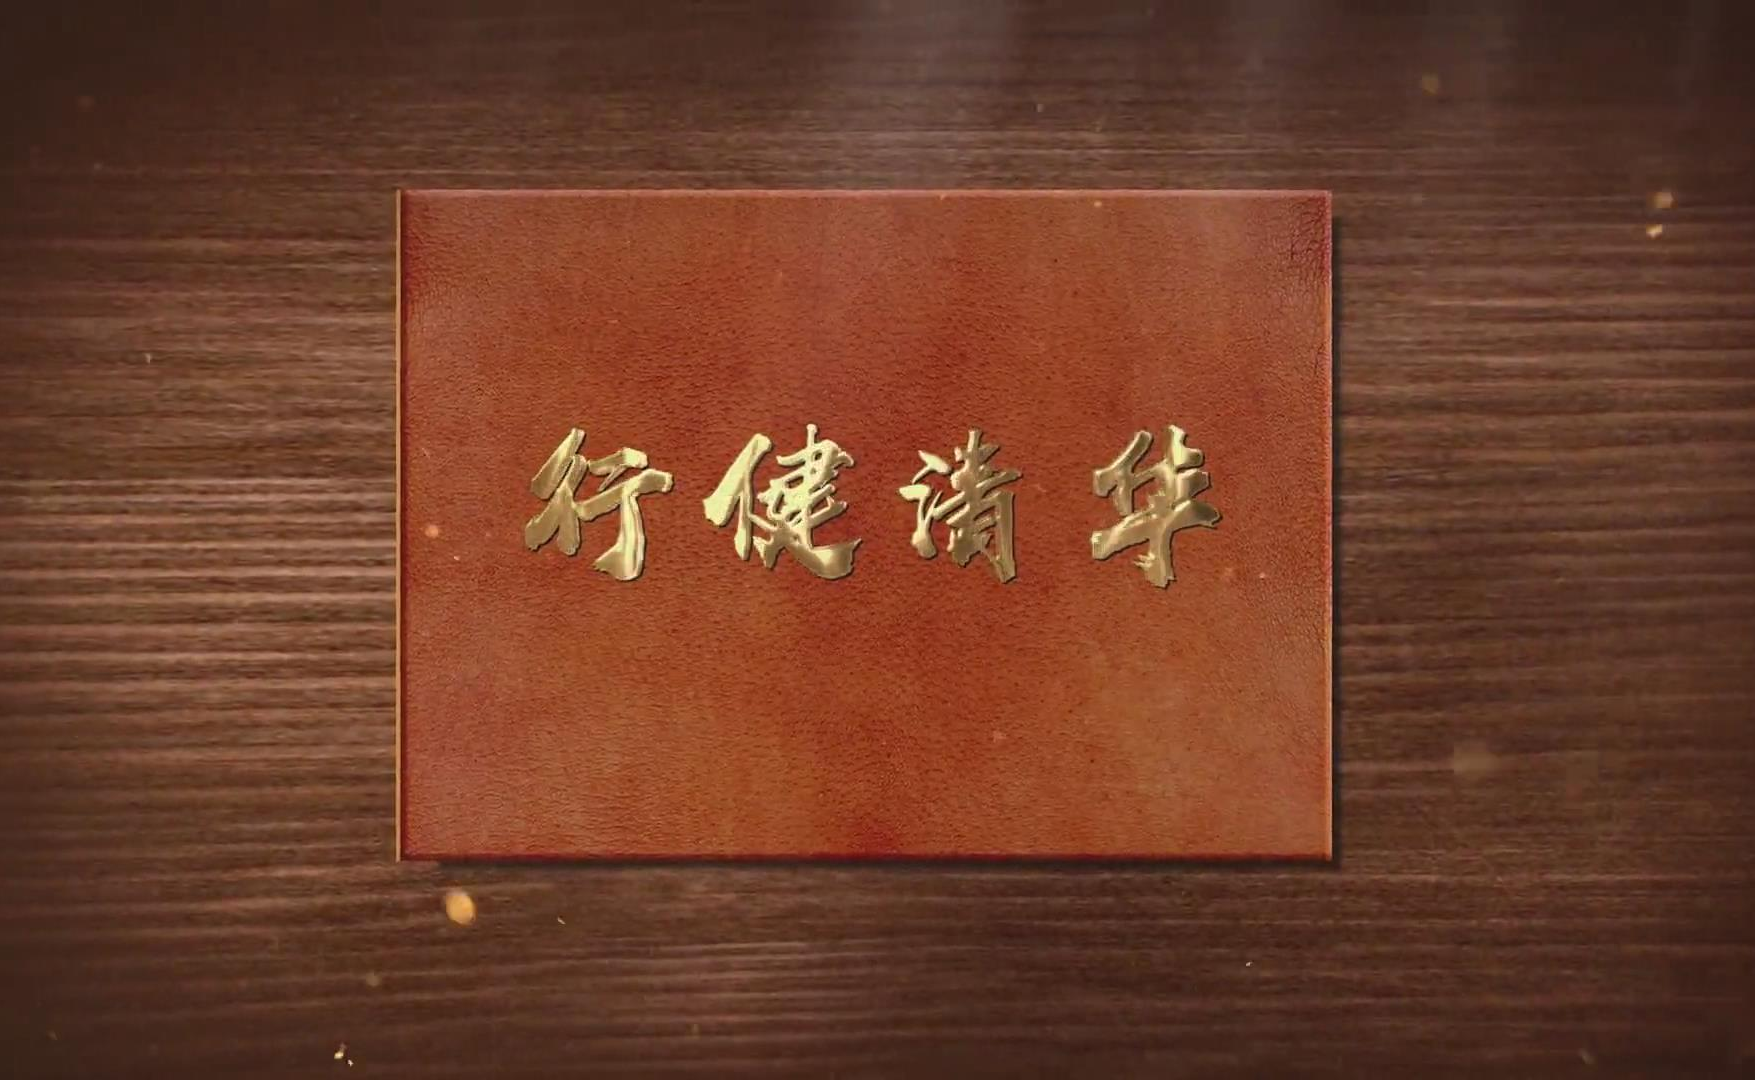 行健清华